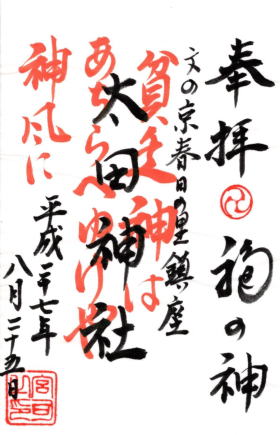 奉拝 袍の神
文の京春日の里鎮座
太田神社
貧乏神は
あちらへゆけや
神風に
平成二十七年
八月二十五日